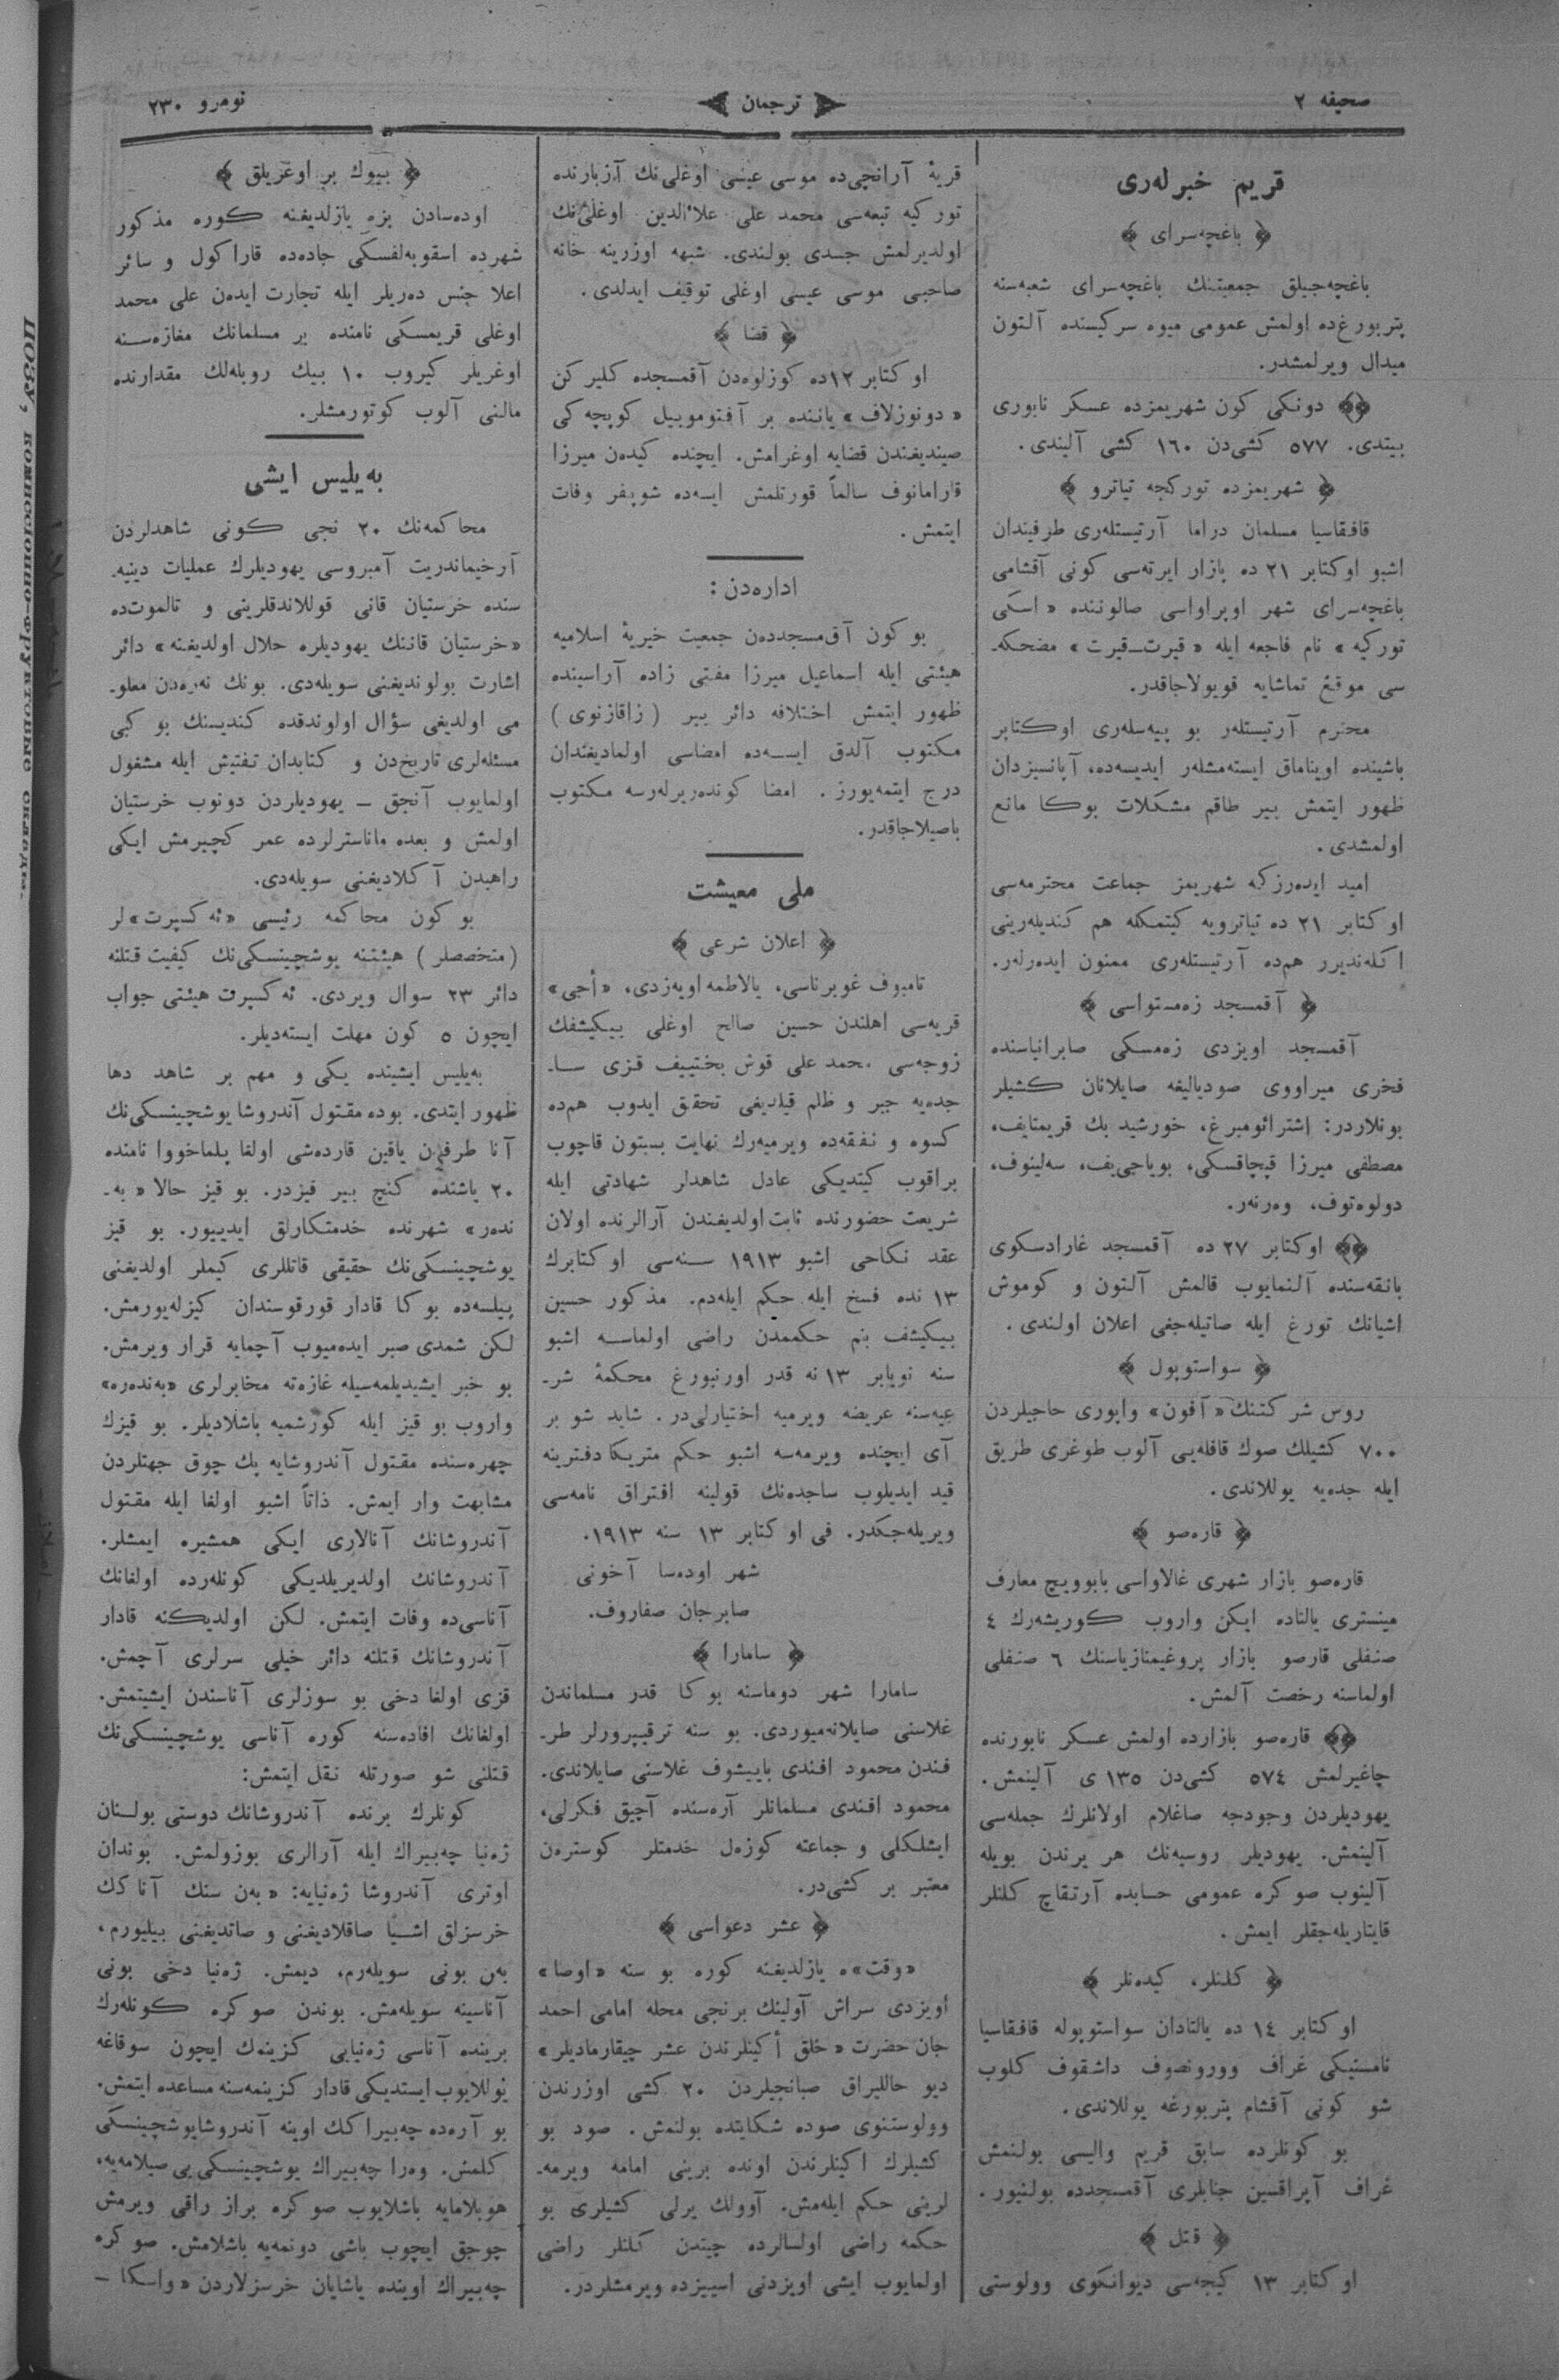 صحیفه ٢
ترجمان
نومرو ٢٣٠
قریم خبرلەری
باغچەسرای
باغچەجیلق جمعیتنك باغچەسرای شعبەسنه
پتربورغ‌ده اولمش عمومی میوه سرکیسنده آلتون
میدال ویرلمشدر.
دونکی کون شهریمزده عسکر نابوری
بیتدی. ٥٧٧ کشی‌دن ١٦٠ کشی آلیندی.
شهریمزده تورکجه تیاترو
قافقاسیا مسلمان دراما آرتیستلەری طرفیندان
اشبو اوکتابر ٢١ ده بازار ایرتەسی کونی آقشامی
باغچەسرای شهر اوپراواسی صالوننده « اسکی
تورکیه » نام فاجعه ایله « قیرت–قیرت » مضحکه‌ـ
سی موقع تماشایه قویولاجاقدر.
محترم آرتیستلەر بو پیەسلەری اوکتابر
باشینده اویناماق ایستەمشلەر ایدیسەده، آپانسیزدان
ظهور ایتمش بیر طاقم مشکلات بوکا مانع
اولمشدی.
امید ایدەرزکه شهریمز جماعت محترمەسی
اوکتابر ٢١ ده تیاترویه کیتمکله هم کندیلەرینی
اکلەندیرر هم‌ده آرتیستلەری ممنون ایدەرلەر.
آقمسجد زەمستواسی
آقمسجد اویزدی زەمسکی صابرانیاسنده
فخری میراووی صودیالیغه صایلانان کشیلر
بونلاردر: اشترائومبرغ، خورشید بك قریمتایف،
مصطفی میرزا قیپچاقسکی، بویاجی‌یف، سەلینوف،
دولوەتوف، وەرنەر.
اوکتابر ٢٧ ده آقمسجد غارادسکوی
بانقەسنده آلنمایوب قالمش آلتون و کوموش
اشیانك تورغ ایله صاتیلەجغی اعلان اولندی.
سواستوپول
روس شرکتنك « آفون » واپوری حاجیلردن
٧٠٠ کشیلك صوك قافلەیی آلوب طوغری طریق
ایله جدەیه یوللاندی.
قارەصو
قارەصو بازار شهری غالاواسی بابوویچ معارف
مینستری یالتاده ایکن واروب کوریشەرك ٤
صنفلی قارصو بازار پروغیمنازیاسنك ٦ صنفلی
اولماسنه رخصت آلمش.
قارەصو بازارده اولمش عسکر نابورنده
چاغیرلمش ٥٧٤ کشی‌دن ١٣٥ ی آلینمش.
یهودیلردن وجودجه صاغلام اولانلرك جملەسی
آلینمش. یهودیلر روسیەنك هر یرندن بویله
آلینوب صوکره عمومی حسابده آرتقاچ کلنلر
قایتاریلەجقلر ایمش.
کلنلر، کیدەنلر
اوکتابر ١٤ ده یالتادان سواستوپوله قافقاسیا
نامستیکی غراف وورونصوف داشقوف کلوب
شو کونی آقشام پتربورغه یوللاندی.
بو کونلرده سابق قریم والیسی بولنمش
غراف آپراقسین جنابلری آقمسجدده بولنیور.
قتل
اوکتابر ١٣ کیجەسی دیوانکوی وولوستی
قریۀ آرانچی‌ده موسی عیسی اوغلی‌نك آزبارنده
تورکیه تبعەسی محمد علی علاءالدین اوغلی‌نك
اولدیرلمش جسدی بولندی. شبهه اوزرینه خانه
صاحبی موسی عیسی اوغلی توقیف ایدلدی.
قضا
اوکتابر ١٢ده کوزلوەدن آقمسجده کلیرکن
« دونوزلاف » یاننده بر آفتوموبیل کوپچەکی
صیندیغندن قضایه اوغرامش. ایچنده کیدەن میرزا
قارامانوف سالماً قورتلمش ایسەده شوپفر وفات
ایتمش.
ادارەدن:
بوکون آق‌مسجددەن جمعیت خیریۀ اسلامیه
هیئتی ایله اسماعیل میرزا مفتی زاده آراسینده
ظهور ایتمش اختلافه دائر بیر ( زاقازنوی )
مکتوب آلدق ایسەده امضاسی اولمادیغندان
درج ایتمەیورز. امضا کوندەریرلەرسه مکتوب
باصیلاجاقدر.
ملی معیشت
اعلان شرعی
تامبوف غوبرناسی، یالاطمه اویەزدی، « أجی »
قریەسی اهلندن حسین صالح اوغلی بیکیشفك
زوجەسی محمد علی قوش بختییف قزی ساـ
جدەیه جبر و ظلم قیلدیغی تحقق ایدوب هم‌ده
کسوه و نفقەده ویرمیەرك نهایت بستون قاچوب
براقوب کیتدیکی عادل شاهدلر شهادتی ایله
شریعت حضورنده ثابت اولدیغندن آرالرنده اولان
عقد نکاحی اشبو ١٩١٣ سنەسی اوکتابرك
١٣ نده فسخ ایله حکم ایلەدم. مذکور حسین
بیکیشف بنم حکممدن راضی اولماسه اشبو
سنه نویابر ١٣ نه قدر اورنبورغ محکمۀ شرـ
عیەسنه عریضه ویرمیه اختیارلی‌در. شاید شو بر
آی ایچنده ویرمەسه اشبو حکم متریکا دفترینه
قید ایدیلوب ساجدەنك قولینه افتراق نامەسی
ویریلەجکدر. فی اوکتابر ١٣ سنه ١٩١٣.
شهر اودەسا آخونی
صابرجان صفاروف.
سامارا
سامارا شهر دوماسنه بوکا قدر مسلماندن
غلاسنی صایلانەمیوردی. بو سنه ترقیپرورلر طرـ
فندن محمود افندی باییشوف غلاسنی صایلاندی.
محمود افندی مسلمانلر آرەسنده آچیق فکرلی،
ایشلکلی و جماعته کوزەل خدمتلر کوسترەن
معتبر بر کشی‌در.
عشر دعواسی
« وقت »ه یازلدیغنه کوره بو سنه « اوصا »
اویزدی سراش آولینك برنجی محله امامی احمد
جان حضرت « خلق أکینلرندن عشر چیقارمادیلر »
دیو حاللیراق صبانجیلردن ٢٠ کشی اوزرندن
وولوستنوی صوده شکایتده بولنمش. صود بو
کشیلرك اکینلرندن اونده برینی امامه ویرمەـ
لرینی حکم ایلەمش. آوولك یرلی کشیلری بو
حکمه راضی اولسالرده چیتدن کلنلر راضی
اولمایوب ایشی اویزدنی اسییزده ویرمشلردر.
بیوك بر اوغریلق
اودەسادن بزه یازلدیغنه کوره مذکور
شهرده اسقوبەلفسکی جادەده قاراکول و سائر
اعلا جنس دەریلر ایله تجارت ایدەن علی محمد
اوغلی قریمسکی نامنده بر مسلمانك مغازەسنه
اوغریلر کیروب ١٠ بیك روبلەلك مقدارنده
مالنی آلوب کوتورمشلر.
بەیلیس ایشی
محاکمەنك ٢٠ نجی کونی شاهدلردن
آرخیماندریت آمبروسی یهودیلرك عملیات دینیه‌ـ
سنده خرستیان قانی قوللاندقلرینی و تالموت‌ده
« خرستیان قاننك یهودیلره حلال اولدیغنه » دائر
اشارت بولوندیغنی سویلەدی. بونك نەرەدن معلوـ
می اولدیغی سؤال اولوندقده کندیسنك بو کبی
مسئلەلری تاریخ‌دن و کتابدان تفتیش ایله مشغول
اولمایوب آنجق – یهودیلردن دونوب خرستیان
اولمش و بعده ماناسترلرده عمر کچیرمش ایکی
راهبدن آکلادیغنی سویلەدی.
بو کون محاکمه رئیسی « ئەکسپرت »لر
( متخصصلر ) هیئتنه یوشچینسکی‌نك کیفیت قتلنه
دائر ٢٣ سوال ویردی. ئەکسپرت هیئتی جواب
ایچون ٥ کون مهلت ایستەدیلر.
بەیلیس ایشینده یکی و مهم بر شاهد دها
ظهور ایتدی. بوده مقتول آندروشا یوشچینسکی‌نك
آنا طرفدن یاقین قاردەشی اولغا پلماخووا نامنده
٢٠ یاشنده کنج بیر قیزدر. بو قیز حالا « بەـ
ندەر » شهرنده خدمتکارلق ایدییور. بو قیز
یوشچینسکی‌نك حقیقی قاتللری کیملر اولدیغنی
بیلسەده بوکا قادار قورقوسندان کیزلەیورمش.
لکن شمدی صبر ایدەمیوب آچمایه قرار ویرمش.
بو خبر ایشیدیلمەسیله غازەته مخابرلری « بەندەره »
واروب بو قیز ایله کورشمیه باشلادیلر. بو قیزك
چهرەسنده مقتول آندروشایه پك چوق جهتلردن
مشابهت وار ایمش. ذاتاً اشبو اولغا ایله مقتول
آندروشانك آنالاری ایکی همشیره ایمشلر.
آندروشانك اولدیریلدیکی کونلەرده اولغانك
آناسی‌ده وفات ایتمش. لکن اولدیکنه قادار
آندروشانك قتلنه دائر خیلی سرلری آچمش.
قزی اولغا دخی بو سوزلری آناسندن ایشیتمش.
اولغانك افادەسنه کوره آناسی یوشچینسکی‌نك
قتلنی شو صورتله نقل ایتمش:
کونلرك برنده آندروشانك دوستی بولنان
ژەنیا چەبیراك ایله آرالری بوزولمش. بوندان
اوتری آندروشا ژەنیایه: « بەن سنك آناکك
خرسزلق اشیا صاقلادیغنی و صاتدیغنی بیلیورم،
بەن بونی سویلەرم، دیمش. ژەنیا دخی بونی
آناسینه سویلەمش. بوندن صوکره کونلەرك
برینده آناسی ژەنیایی کزینمك ایچون سوقاغه
یوللایوب ایستدیکی قادار کزینمەسنه مساعده ایتمش.
بو آرەده چەبیراکك اوینه آندروشا یوشچینسکی
کلمش. وەرا چەبیراك یوشچینسکی‌یی صیلامەیه،
هوپلامایه باشلایوب صوکره براز راقی ویرمش
چوجق ایچوب باشی دونمەیه باشلامش. صوکره
چەبیراك اوینده یاشایان خرسزلاردن « واسکا –